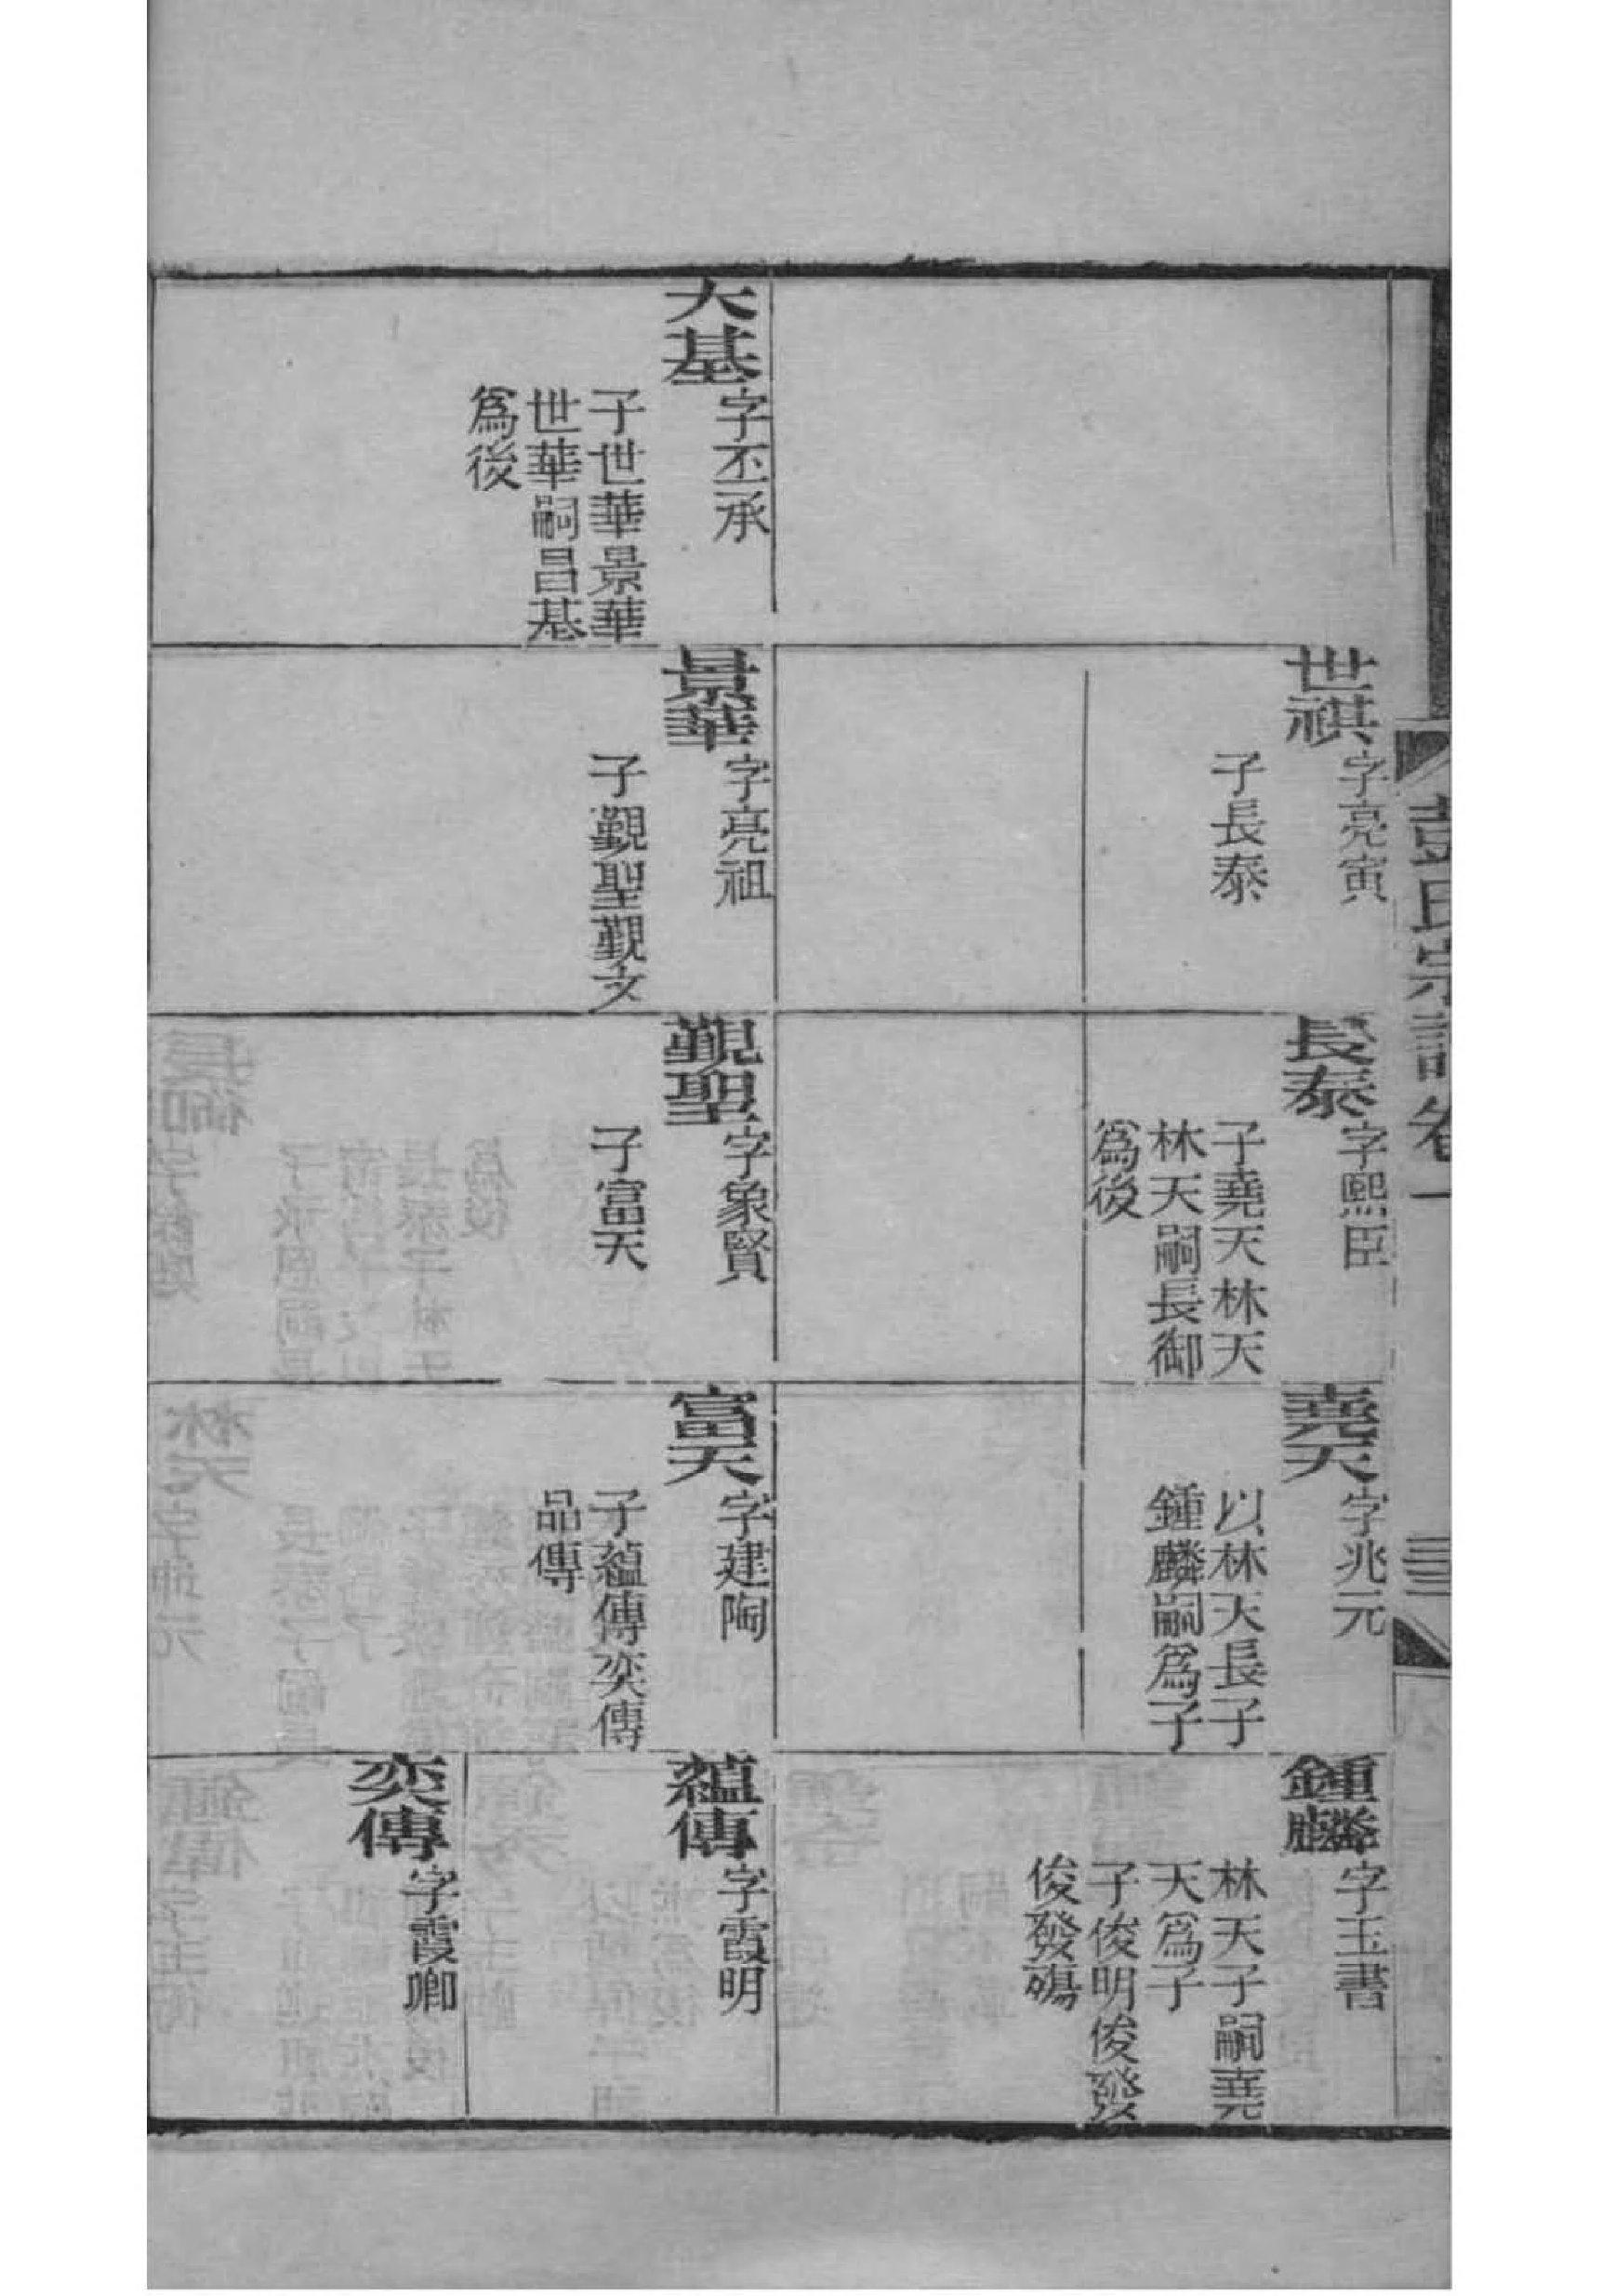 彭氏宗譜卷一
三
世祺
字亮寅
子長泰
長泰
字熙臣
子堯天林天
林天嗣長御
爲後
堯天
字兆元
以林天長子
鍾麟嗣爲子
鍾麟
字玉書
林天子嗣堯
天爲子
子俊明俊發
俊發殤
大基
字丕承
子世華景華
世華嗣昌基
爲後
景華
字亮祖
子覲聖覲文
覲聖
字象賢
子富天
富天
字建陶
子蘊傳奕傳
品傳
蘊傳
字霞明
奕傳
字霞卿